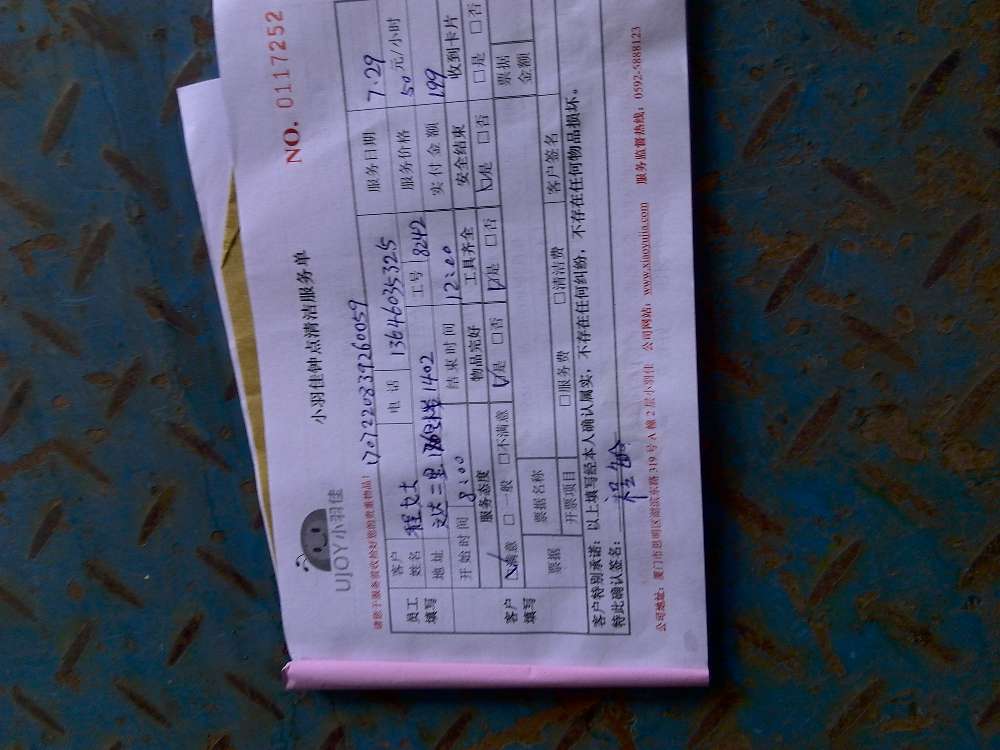 NO. 0117252
小羽佳钟点清洁服务单
UJOY小羽佳
请您于服务前收拾好您的贵重物品！ 1707220839260059
员工填写 客户姓名 程女士 电话 13646035325 服务日期 7.29
地址 1402 工号 8242 服务价格 50 元/小时
开始时间 8:00 结束时间 12:00 实付金额 199
客户填写 服务态度 物品完好 工具齐全 安全结束 收到卡片
☑满意 □一般 □不满意 ☑是 □否 ☑是 □否 ☑是 □否 □是 □否
票据 票据名称 票据金额
开票项目 □服务费 □清洁费 客户签名
客户特别承诺：以上填写经本人确认属实，不存在任何纠纷，不存在任何物品损坏。
特此确认签名：
公司地址：厦门市思明区湖滨东路319号A幢2层小羽佳 公司网站：www.xiaoyujia.com 服务监督热线：0592-5888123